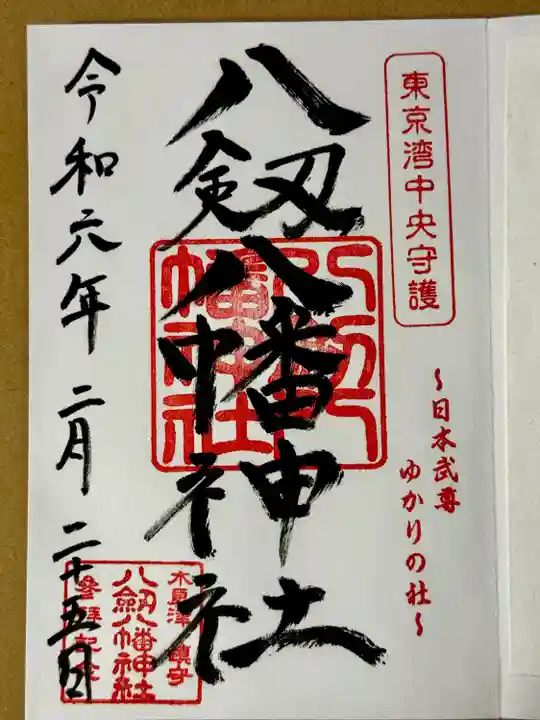 東京湾中央守護
〜日本武尊
ゆかりの社〜
八剱八幡神社
八剱八幡神社
令和六年二月二十五日
木更津 鎮守
八剱八幡神社
參拝記念